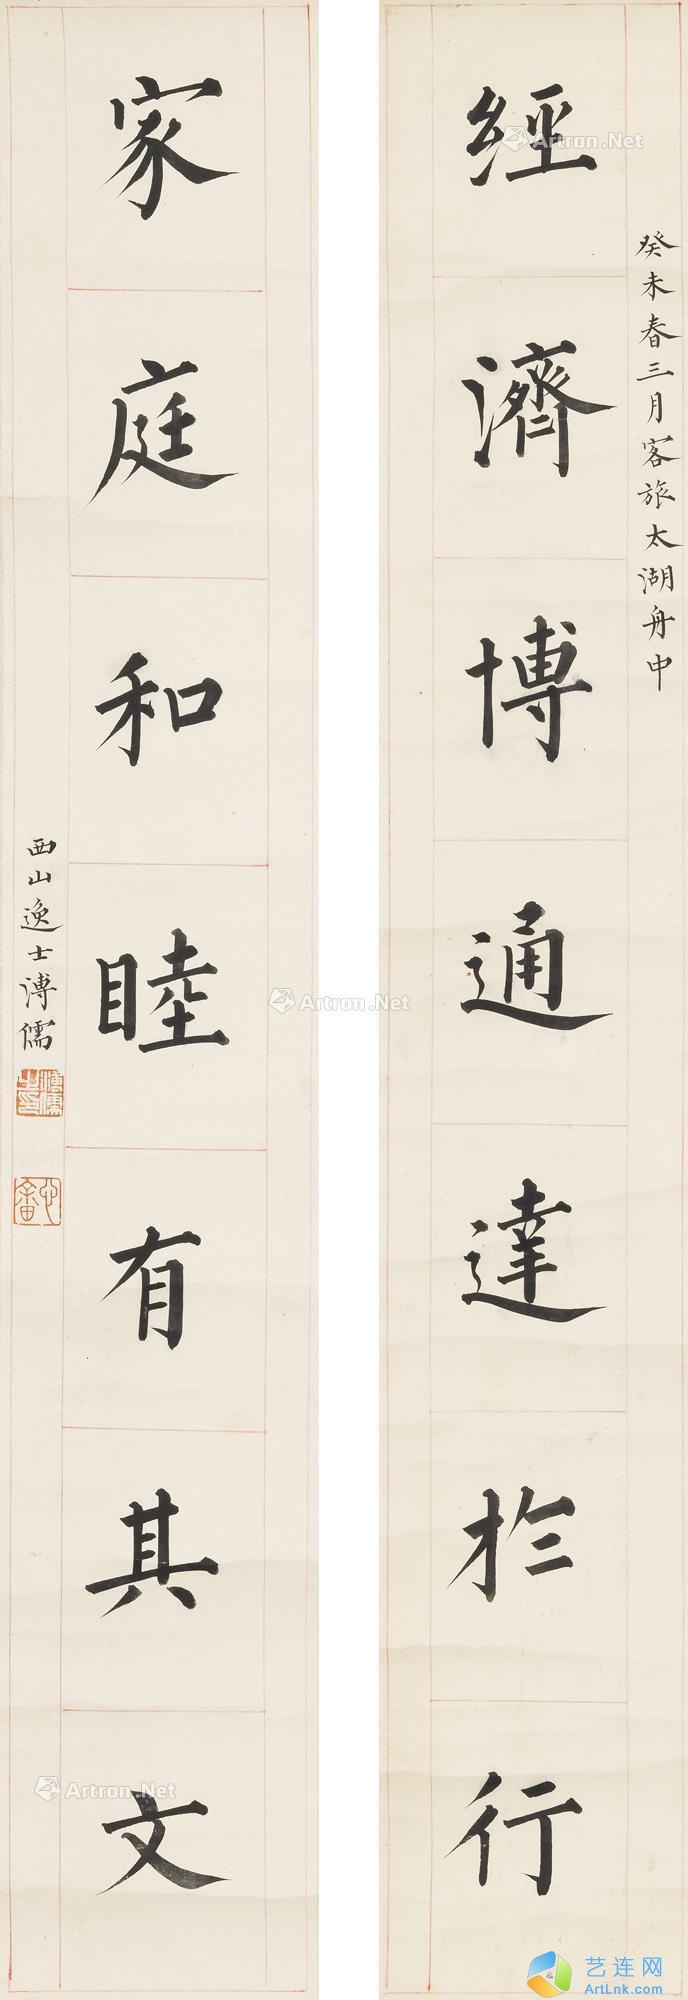 癸未春三月客旅太湖舟中
經濟博通達於行
家庭和睦有其文
西山逸士溥儒
溥儒之印
心畬
Artron.Net
Artron.Net
Artron.Net
艺连网
ArtLnk.com